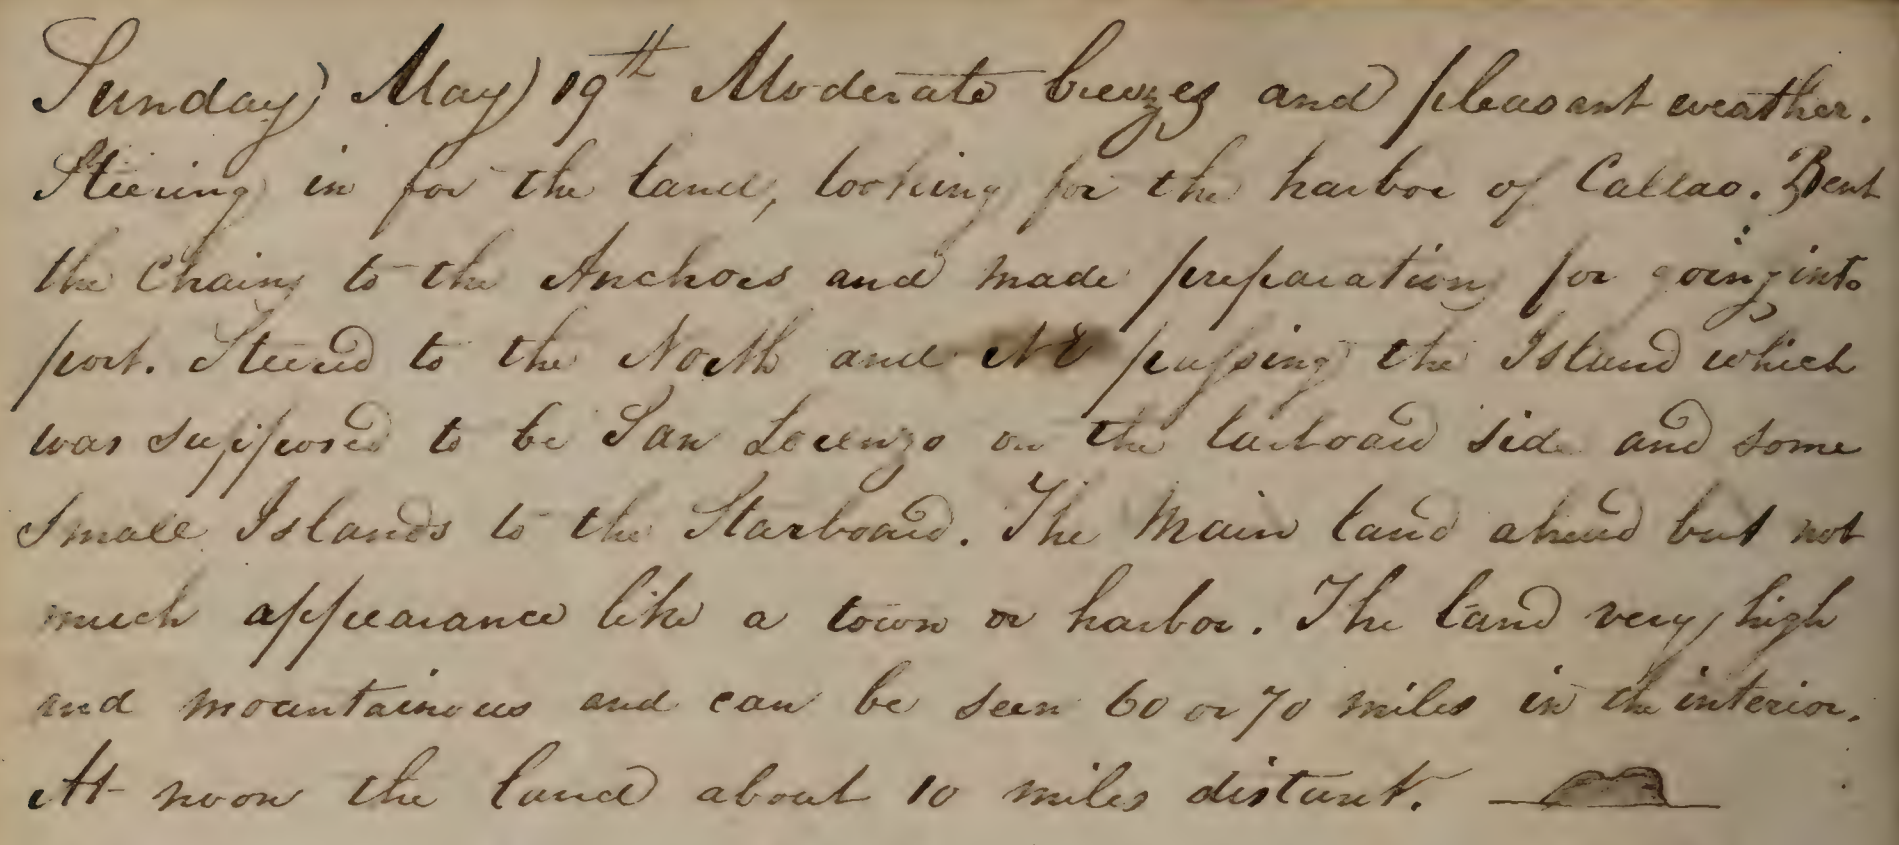 Sunday May 19th Moderate breezes and pleasant weather.
Steering in for the land, looking for the harbor of Callao. Bent
the Chains to the Anchors and made preparation for going into
port. Steered to the North and NE passing the Island which
was supposed to be San Lorenzo on the larboard side and some
Small Islands to the Starboard. The Main land ahead but not
much appearance like a town or harbor. The land very high
and mountainous and can be seen 60 or 70 miles in the interior.
At noon the land about 10 miles distant.